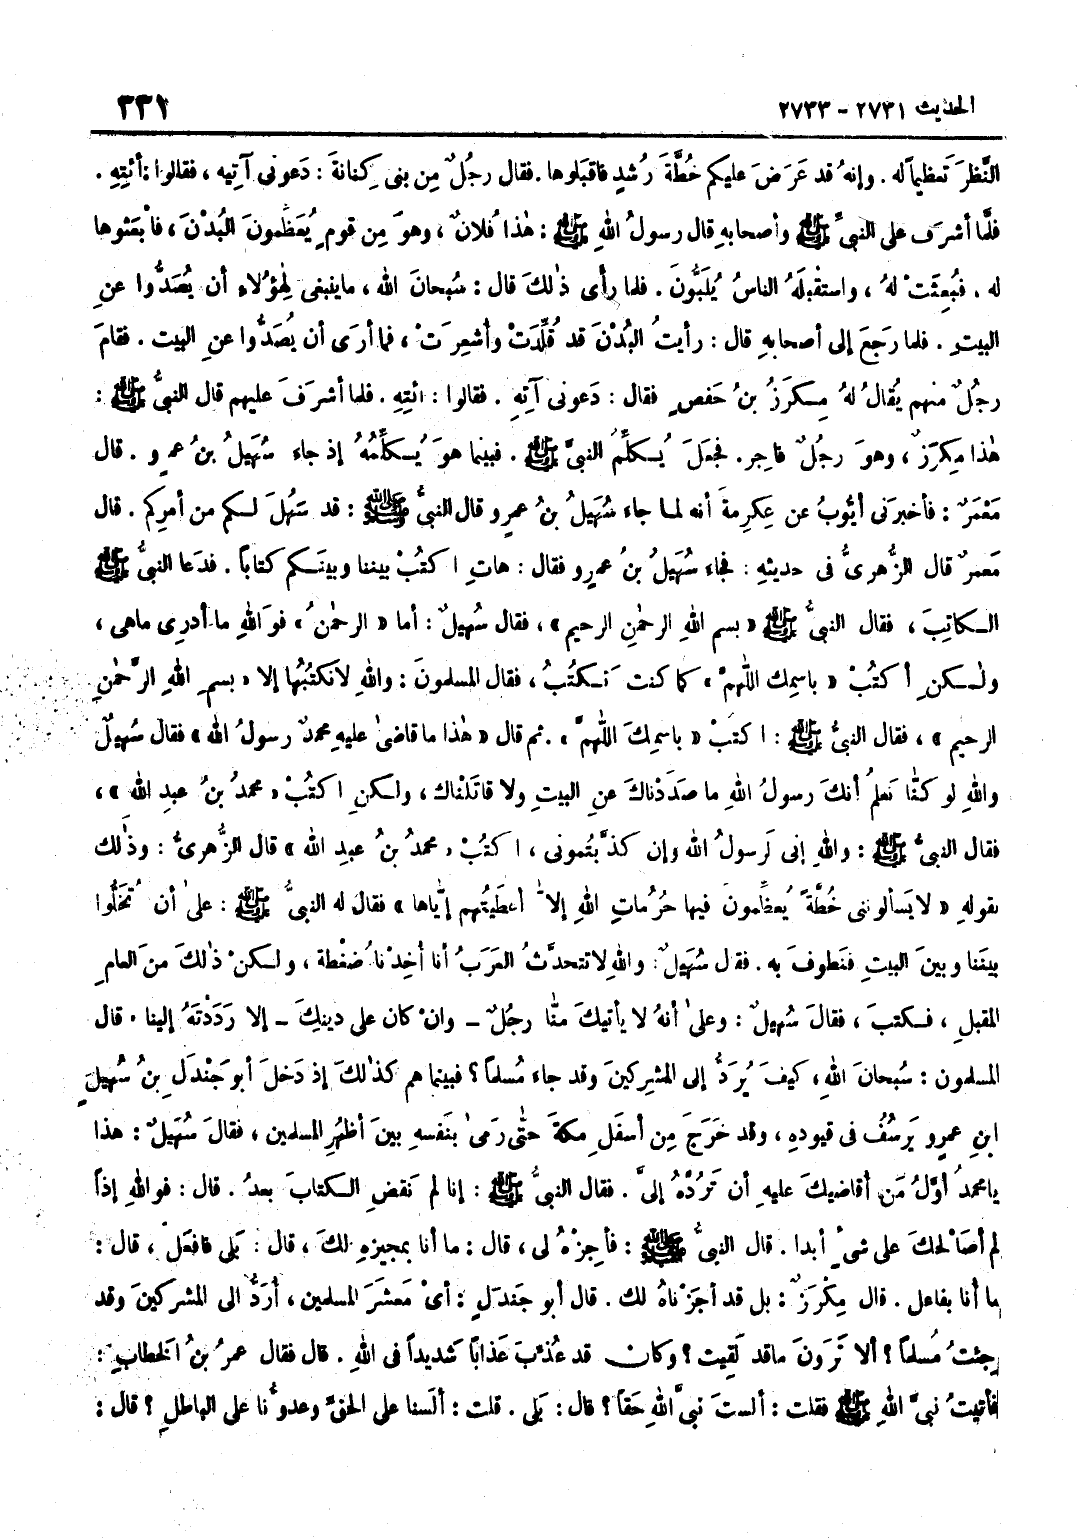 الحديث ٢٧٣١ - ٢٧٣٣
٣٣١
النَّظرَ تَعظيماً له . وإنهُ قد عَرَضَ عليكم خُطَّةَ رُشدٍ فاقبَلوها . فقال رجُلٌ مِن بنى كِنانةَ : دَعونى آتيه ، فقالوا : ائتِهِ .
فلمَّا أشرَف على النبيِّ ﷺ وأصحابهِ قال رسولُ اللهِ ﷺ : هٰذا فُلانٌ ، وهوَ مِن قومٍ يُعَظِّمونَ البُدْنَ ، فابْعَثوها
له . فبُعِثَتْ لهُ ، واستقْبلَهُ الناسُ يُلَبُّونَ . فلما رأى ذٰلكَ قال : سُبحانَ الله ، ماينبغى لِهٰؤلاءِ أن يُصَدُّوا عنِ
البيتِ . فلما رَجَعَ إلى أصحابهِ قال : رأيتُ البُدْنَ قد قُلِّدَتْ وأُشعِرَتْ ، فما أرَى أن يُصَدُّوا عنِ البيت . فقامَ
رجُلٌ منهم يُقالُ لهُ مِكرَزُ بنُ حَفصٍ فقال : دَعونى آتهِ . فقالوا : ائتِهِ . فلما أشرَفَ عليهم قال النبيُّ ﷺ :
هٰذا مِكرَزٌ ، وهوَ رجُلٌ فاجر . فجعَلَ يُكلِّمُ النبيَّ ﷺ . فبينما هوَ يُكلِّمُهُ إذ جاء سُهَيلُ بنُ عمرٍو . قال
مَعْمَرٌ : فأخبرَنى أيُّوبُ عن عِكرِمةَ أنه لما جاء سُهَيلُ بنُ عمرٍو قال النبيُّ ﷺ : قد سَهُلَ لكم من أمرِكم . قال
مَعمرٌ قال الزُّهرىُّ فى حديثهِ : فجاء سُهَيلُ بنُ عمرٍو فقال : هاتِ اكتُبْ بيننا وبينَكم كتاباً . فدَعا النبيُّ ﷺ
الكاتِبَ ، فقال النبيُّ ﷺ « بسم اللهِ الرحمٰنِ الرحيم » ، فقال سُهيلٌ : أما « الرحمٰنُ » فوَاللهِ ما أدرِى ماهى ،
ولٰكنِ أكتُبْ « باسمِك اللّهمَّ » كما كنت تَكتُبُ ، فقال المسلمونَ : واللهِ لانَكتُبُها إلا « بسمِ اللهِ الرَّحمٰنِ
الرحيم » ، فقال النبيُّ ﷺ : اكتبْ « باسمِكَ اللّهمَّ » . ثم قال « هٰذا ما قاضىٰ عليهِ محمدٌ رسولُ الله » فقال سُهيلٌ
واللهِ لو كنَّا نَعلمُ أنكَ رسولُ اللهِ ما صدَدْناكَ عنِ البيتِ ولا قاتَلناك ، ولكنِ اكتُبْ « محمدُ بنُ عبدِ الله » ،
فقال النبيُّ ﷺ : واللهِ إنى لَرسولُ الله وإن كذَّبتُمونى ، اكتُبْ « محمدُ بنُ عبدِ الله » قال الزُّهرىُّ : وذٰلك
لقولهِ « لا يَسألوننى خُطَّةً يُعظِّمونَ فيها حرُماتِ اللهِ إلاَّ أعطَيتُهم إيَّاها » فقال له النبيُّ ﷺ : علىٰ أن تُخَلُّوا
بينَنا وبينَ البيتِ فنَطوفَ به . فقال سُهَيلٌ : واللهِ لاتتحدَّثُ العرَبُ أنا أُخِذْنا ضُغْطة ، ولكنْ ذٰلكَ منَ العامِ
المقبل ، فكتبَ ، فقالَ سُهيلٌ : وعلىٰ أنهُ لا يأتيكَ منَّا رجُلٌ - وان كان على دينِكَ - إلا رَدَدْتَهُ إلينا . قال
المسلمون : سُبحانَ اللهِ ، كيفَ يُرَدُّ إلى المشركينَ وقد جاء مُسلماً ؟ فبينما هم كذٰلكَ إذ دَخلَ أبو جَنْدَلِ بنُ سُهيلِ
ابنِ عمرٍو يَرسُفُ فى قيودِهِ ، وقد خَرَجَ مِن أسفَلِ مكةَ حتّٰى رَمىٰ بنَفسهِ بينَ أظهُرِ المسلمين ، فقالَ سُهَيلٌ : هذا
يامحمدُ أوَّلُ مَن أقاضيكَ عليهِ أن تَرُدَّهُ إلىَّ . فقال النبيُّ ﷺ : إنا لم نَقضِ الكتابَ بعدُ . قال : فواللهِ إذاً
لم أصالحْكَ على شىءٍ أبدا . قال النبيُّ ﷺ : فأجِزْهُ لى ، قال : ما أنا بمجيزهِ لكَ ، قال : بَلى فافعَلْ ، قال :
ما أنا بفاعل . قال مِكْرَزٌ : بل قد أجَزْناهُ لك . قال أبو جَندَلٍ : أىْ مَعشرَ المسلمين ، أُرَدُّ الى المشركينَ وقد
جئتُ مُسلماً ؟ ألا تَرَونَ ماقد لَقِيت ؟ وكان قد عُذِّبَ عَذاباً شديداً فى اللهِ . قال فقال عمرُ بنُ الخطابِ :
فأتيتُ نبيَّ اللهِ ﷺ فقلت : ألستَ نبيَّ اللهِ حَقاً ؟ قال : بَلى . قلت : ألَسنا على الحقِّ وعدوُّنا على الباطل ؟ قال :